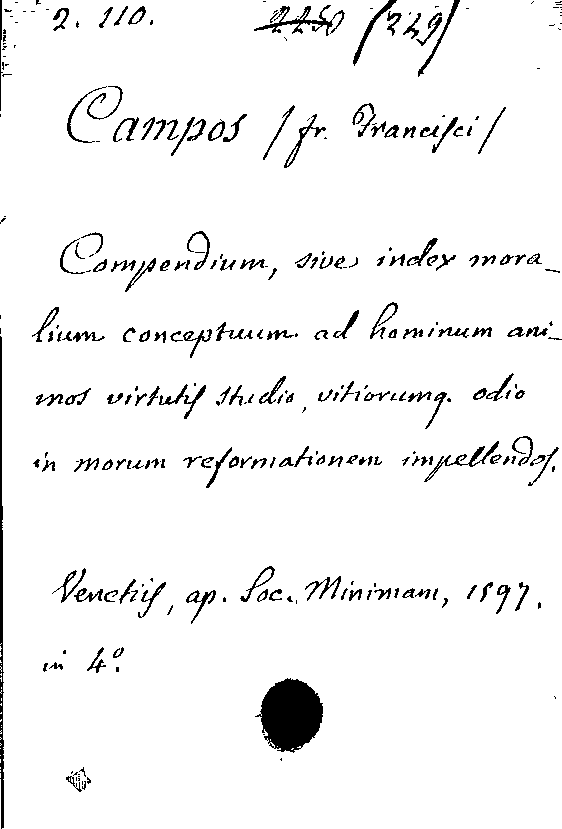 2. 110. 2250 /249/
Campos /fr. Francisci/
Compendium, sive index mora_
lium conceptuum ad hominum ani_
mos virtutis studio, vitiorumq. odio
in morum reformationem impellendos.
Venetiis, ap. Soc. Minimam, 1597.
in 4º.